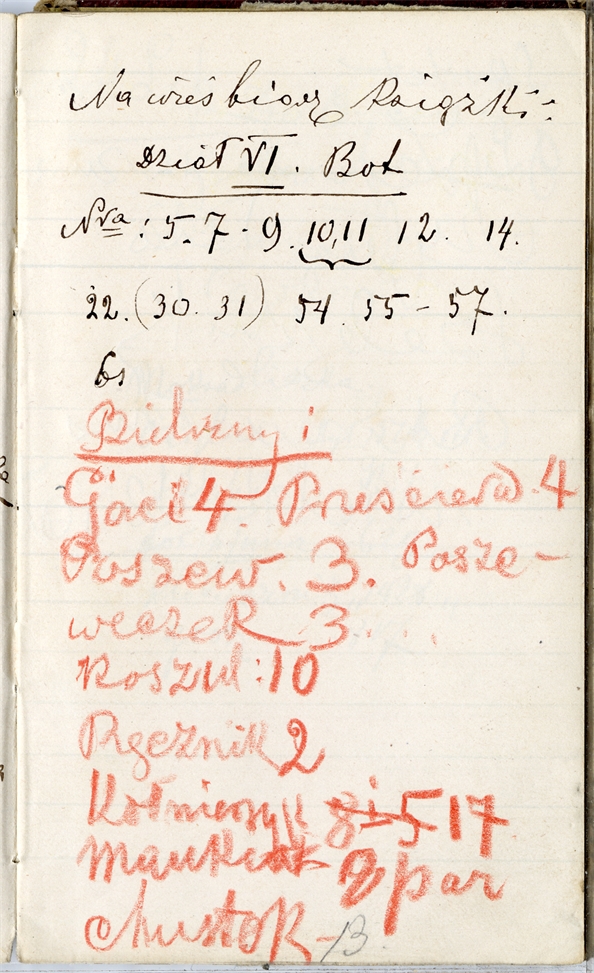 Na wieś biorę Książki:
Dział VI. Bot
Nra: 5. 7 - 9. 10, 11 12. 14.
22. (30. 31) 54. 55 - 57.
Bielizny i
Gaci 4. Prześcierad. 4
Poszew. 3. Posze-
weczek 3 . . .
Koszul: 10
Ręcznik 2
Kołnierzyk 17
Mankiet 2 par
chustek - 13.